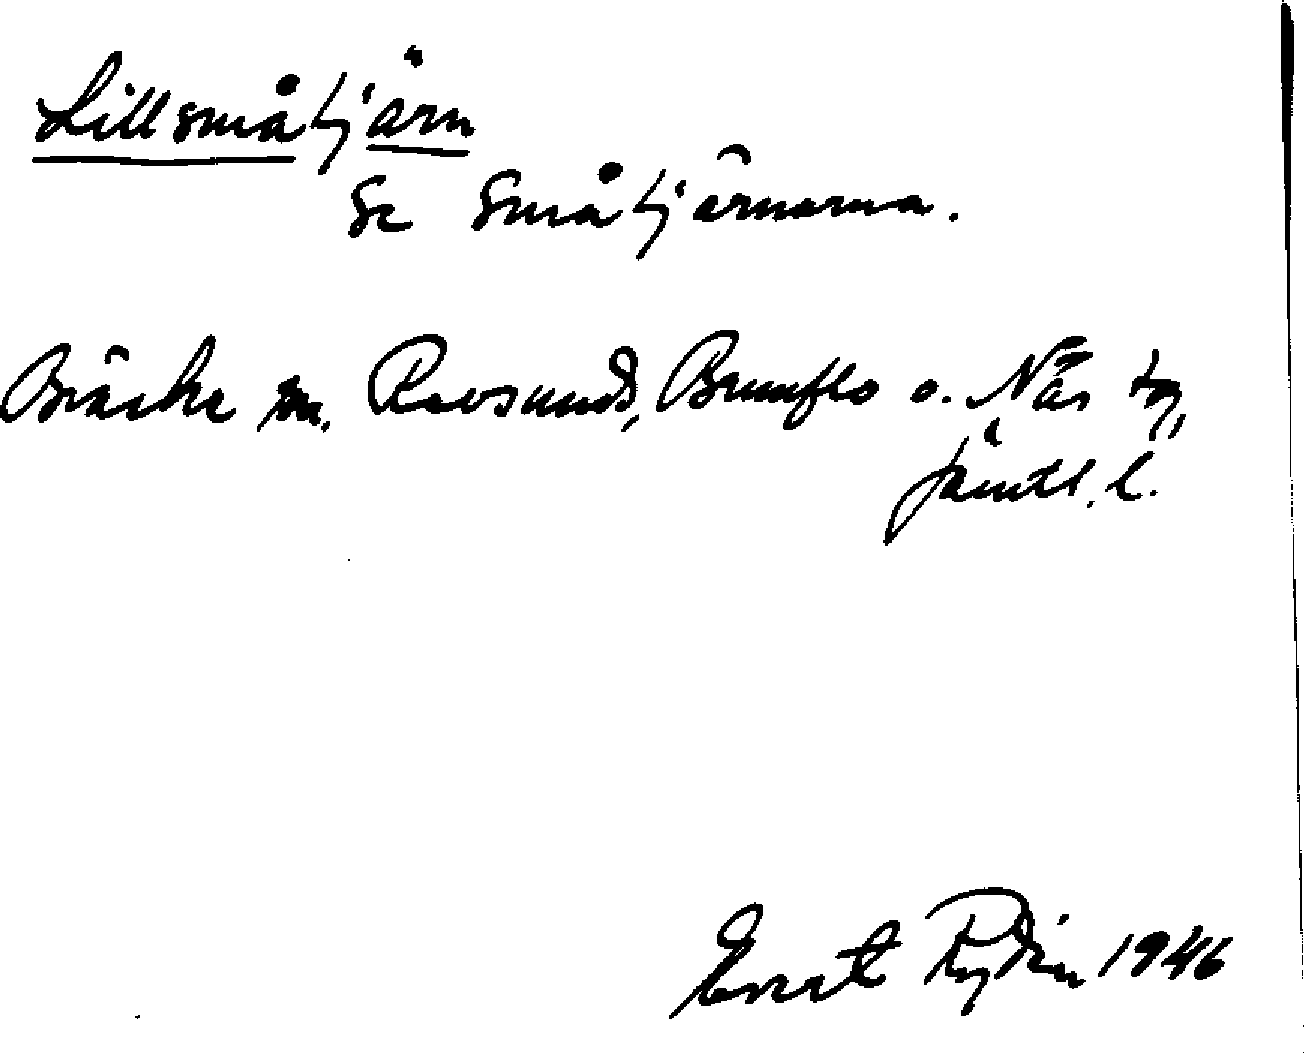 Lillsmåtjärn
Se Småtjärnarna.
Bräcke m. Revsunds, Brunflo o. Näs tg,
Jämtl. l.
Ernst Rydin 1946